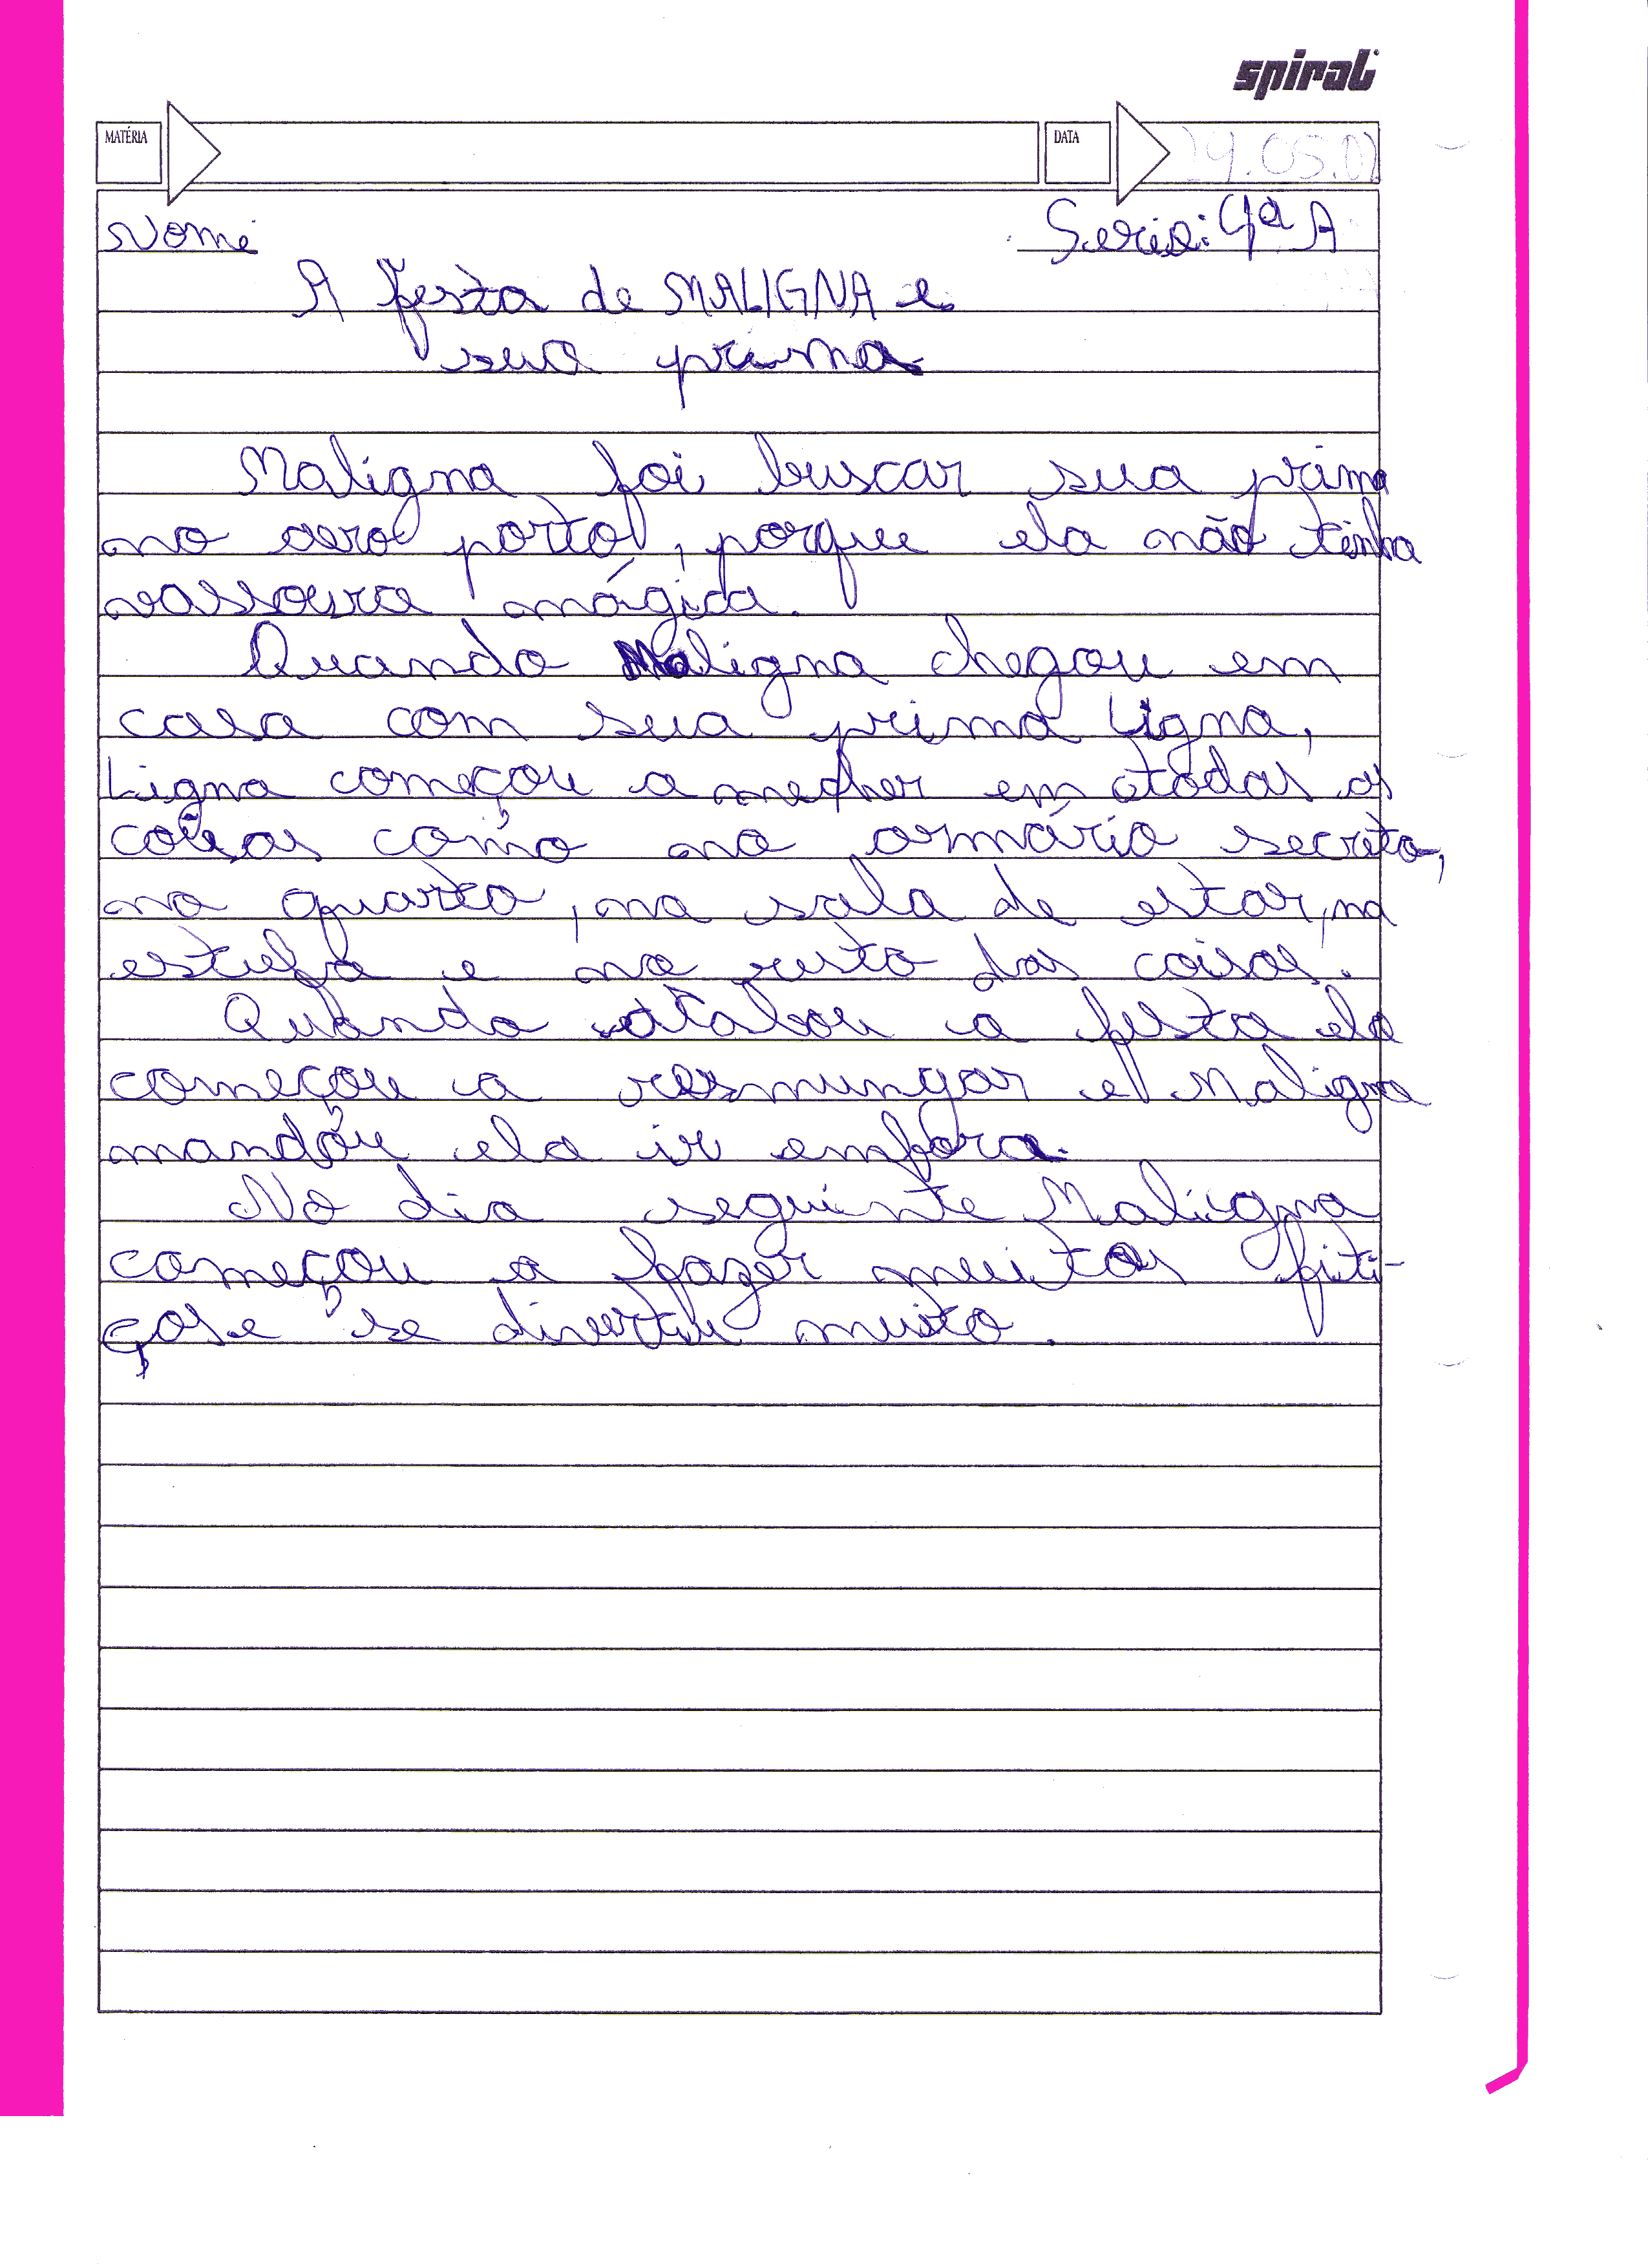 spiral
MATÉRIA DATA 29.05.01
Nome Serie: 4ª A
A festa de MALIGNA e
sua prima
Maligna foi buscar sua prima
no aero porto, porque ela não tinha
vassoura mágica.
Quando Maligna chegou em
casa com sua prima Ligna,
Ligna começou a mecher em todas as
coisas como no armário secreto,
no quarto, na sala de estar, na
estufa e no resto das coisas.
Quando acabou a festa ela
começou a resmungar e Maligna
mandou ela ir embora.
No dia seguinte Maligna
começou a fazer muitos fiti-
ços e se divertiu muito.